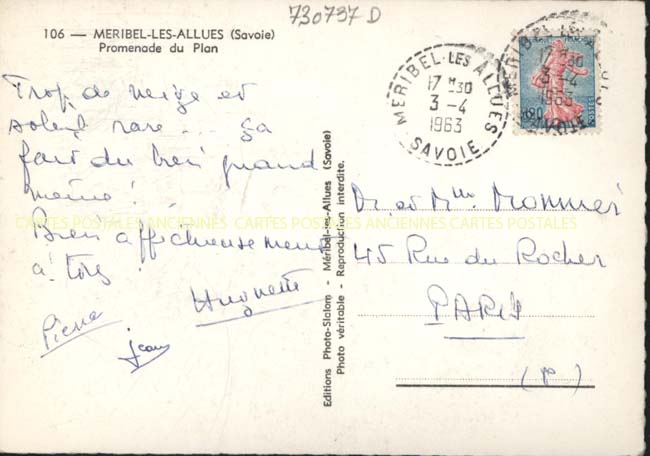 730737 D
106 — MERIBEL-LES-ALLUES (Savoie)
Promenade du Plan
Trop de neige et
soleil rare... ça
fait du bien quand
même !
Bien affectueusement
à tous !
Huguette
Pierre
Jean
CARTES POSTALES ANCIENNES CARTES POSTALES ANCIENNES CARTES POSTALES
Editions Photo-Slalom - Méribel-les-Allues (Savoie)
Photo véritable - Reproduction interdite.
MERIBEL-LES ALLUES
17 H30
3-4
1963
SAVOIE
MERIBEL-LES ALLUES
17 H30
3-4
1963
SAVOIE
0,20
POSTES
M. et Mme Monnier
45 Rue du Rocher
PARIS